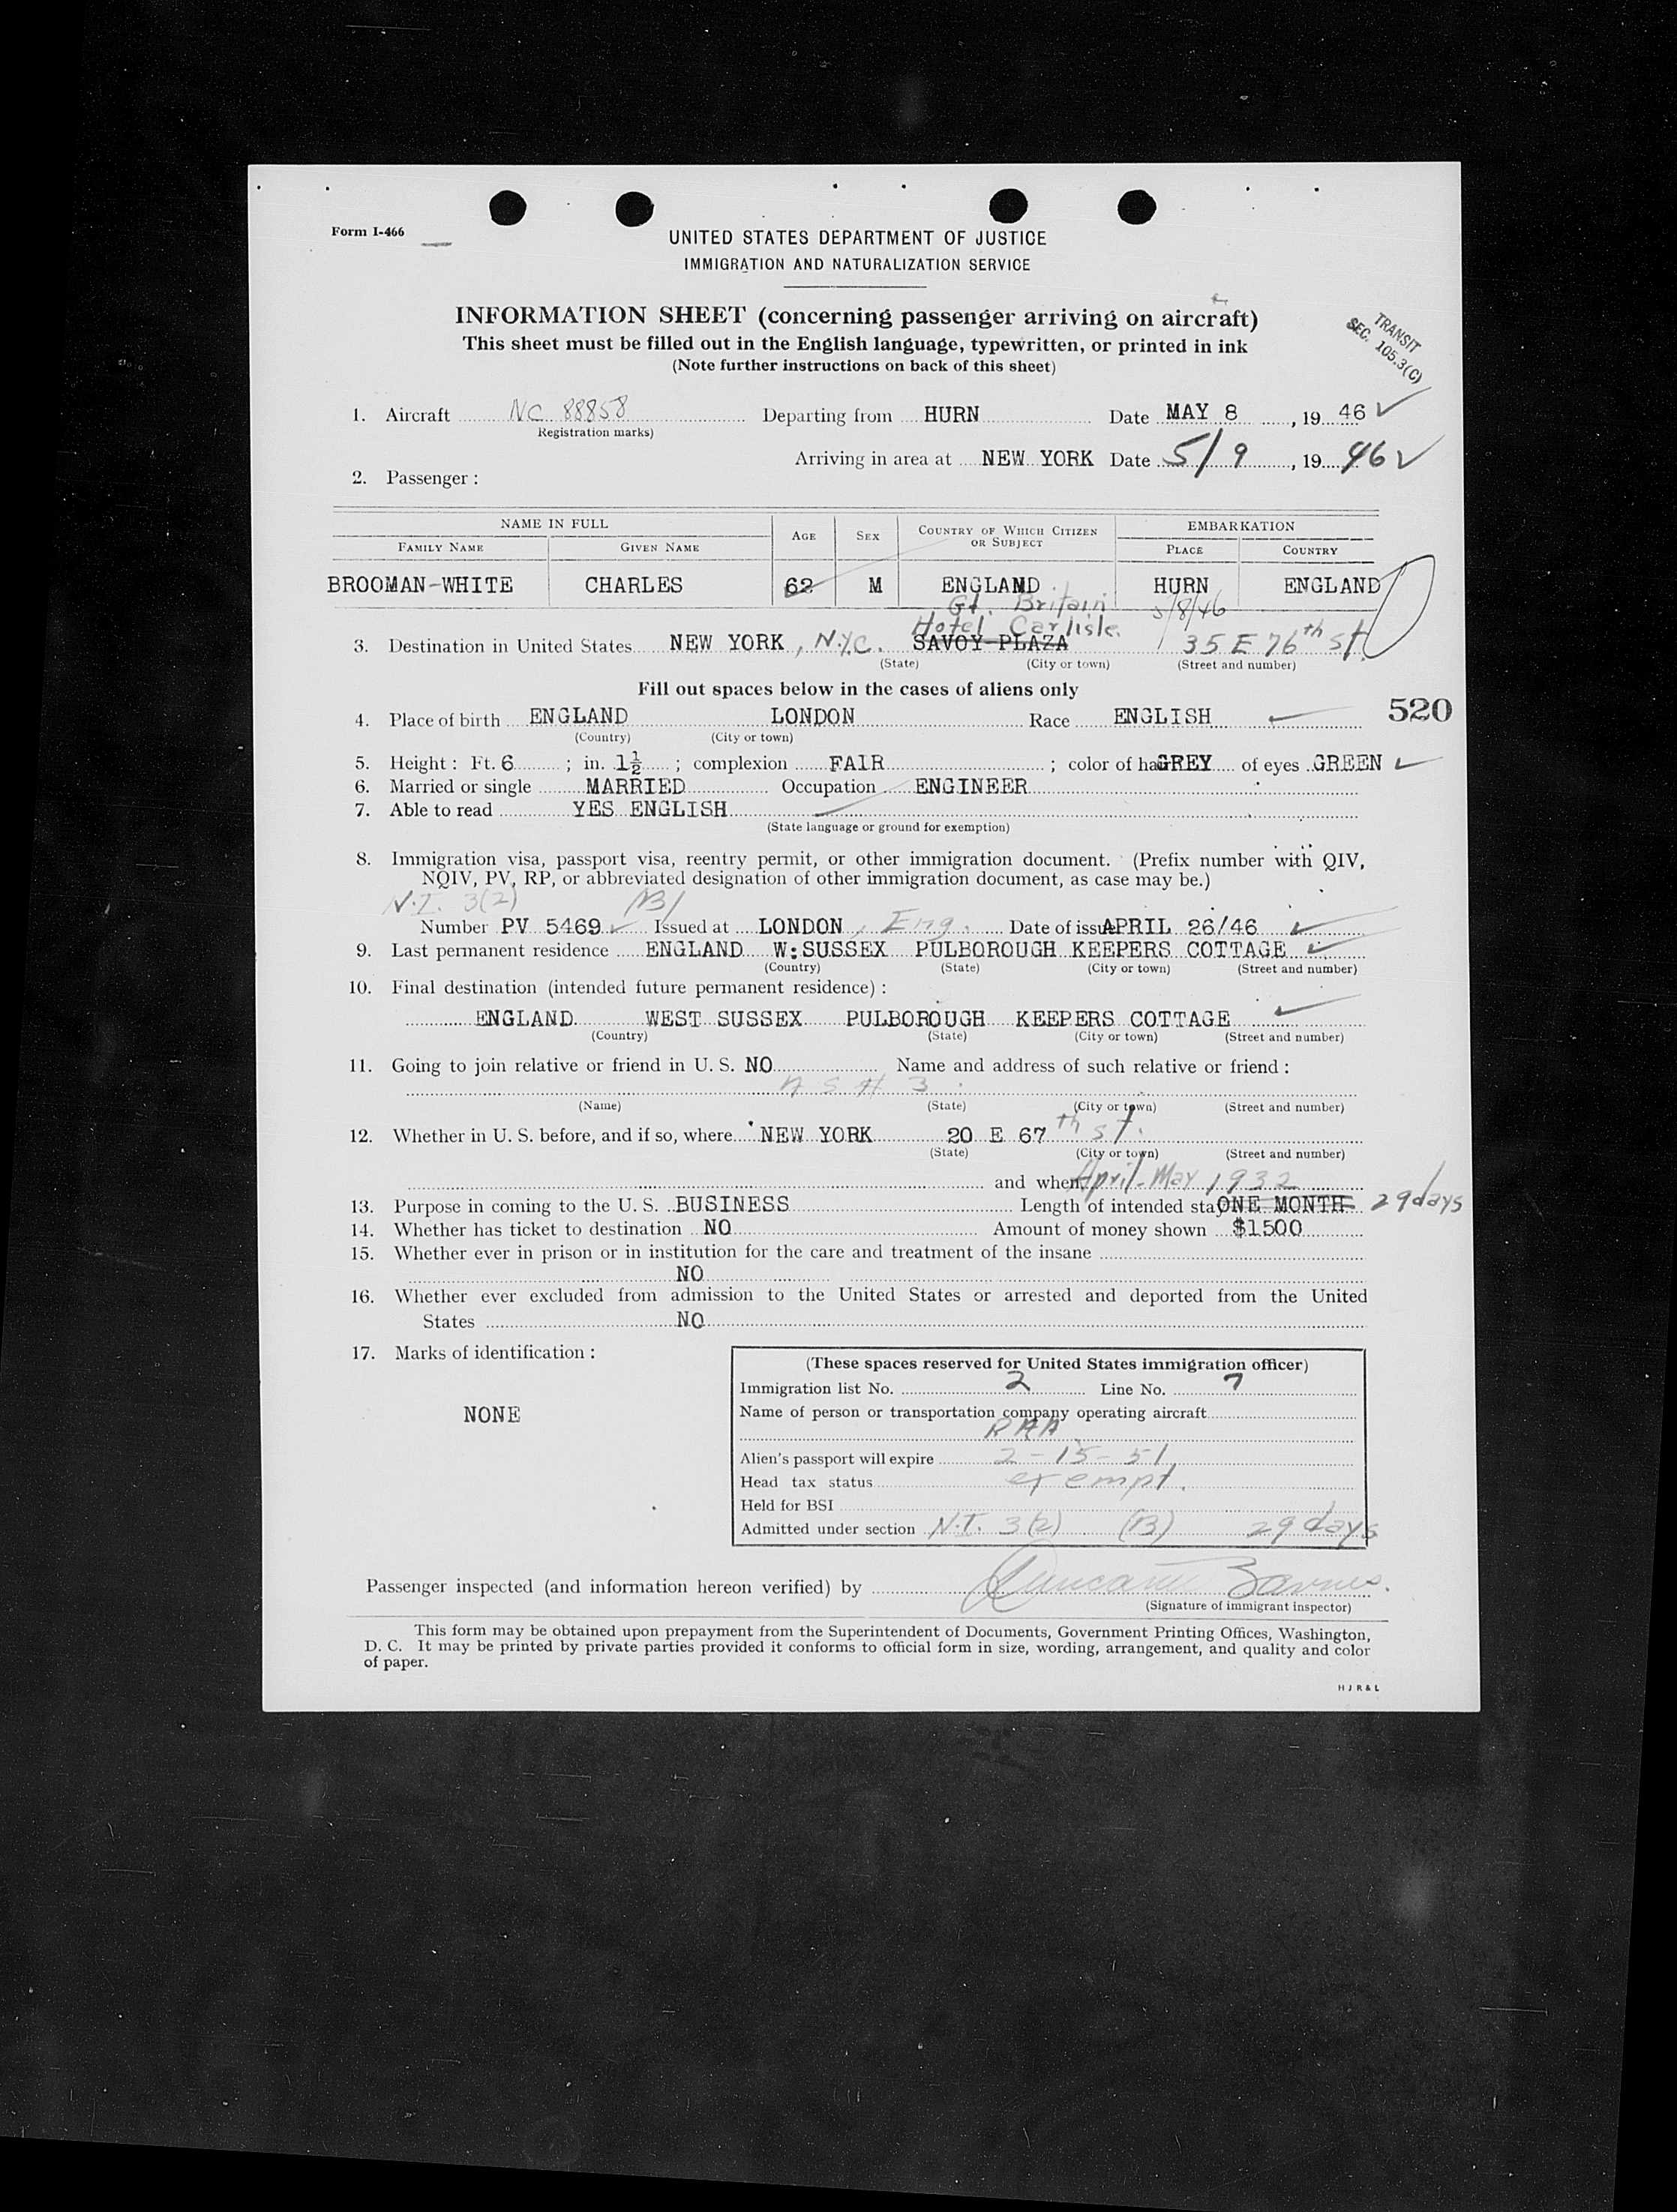 Form I-466
UNITED STATES DEPARTMENT OF JUSTICE
IMMIGRATION AND NATURALIZATION SERVICE
INFORMATION SHEET (concerning passenger arriving on aircraft)
This sheet must be filled out in the English language, typewritten, or printed in ink
(Note further instructions on back of this sheet)
TRANSIT
SEC. 105.3(C)
1. Aircraft NC 88858 Departing from HURN Date MAY 8, 1946
(Registration marks)
Arriving in area at NEW YORK Date 5/9, 1946
2. Passenger:
NAME IN FULL AGE SEX COUNTRY OF WHICH CITIZEN OR SUBJECT EMBARKATION
FAMILY NAME GIVEN NAME PLACE COUNTRY
BROOMAN-WHITE CHARLES 62 M ENGLAND HURN ENGLAND
Gt. Britain 5/8/46
Hotel Carlisle
3. Destination in United States NEW YORK, N.Y.C. SAVOY-PLAZA 35 E 76th st.
(State) (City or town) (Street and number)
Fill out spaces below in the cases of aliens only
520
4. Place of birth ENGLAND LONDON Race ENGLISH
(Country) (City or town)
5. Height: Ft. 6; in. 1½; complexion FAIR; color of ha GREY of eyes GREEN
6. Married or single MARRIED Occupation ENGINEER
7. Able to read YES ENGLISH
(State language or ground for exemption)
8. Immigration visa, passport visa, reentry permit, or other immigration document. (Prefix number with QIV,
NQIV, PV, RP, or abbreviated designation of other immigration document, as case may be.)
N.I. 3(2) (B)
Number PV 5469 Issued at LONDON, Eng. Date of issu APRIL 26/46
9. Last permanent residence ENGLAND W:SUSSEX PULBOROUGH KEEPERS COTTAGE
(Country) (State) (City or town) (Street and number)
10. Final destination (intended future permanent residence):
ENGLAND WEST SUSSEX PULBOROUGH KEEPERS COTTAGE
(Country) (State) (City or town) (Street and number)
11. Going to join relative or friend in U. S. NO Name and address of such relative or friend:
(Name) (State) (City or town) (Street and number)
12. Whether in U. S. before, and if so, where NEW YORK 20 E 67th st.
(State) (City or town) (Street and number)
and when April-May 1932
13. Purpose in coming to the U. S. BUSINESS Length of intended sta ONE MONTH 29days
14. Whether has ticket to destination NO Amount of money shown $1500
15. Whether ever in prison or in institution for the care and treatment of the insane
NO
16. Whether ever excluded from admission to the United States or arrested and deported from the United
States NO
17. Marks of identification:
NONE
(These spaces reserved for United States immigration officer)
Immigration list No. 2 Line No. 7
Name of person or transportation company operating aircraft
PAA
Alien's passport will expire 2-15-51
Head tax status exempt.
Held for BSI
Admitted under section N.I. 3(2) (B) 29 days
Passenger inspected (and information hereon verified) by
(Signature of immigrant inspector)
This form may be obtained upon prepayment from the Superintendent of Documents, Government Printing Offices, Washington,
D. C. It may be printed by private parties provided it conforms to official form in size, wording, arrangement, and quality and color
of paper.
H J R & L